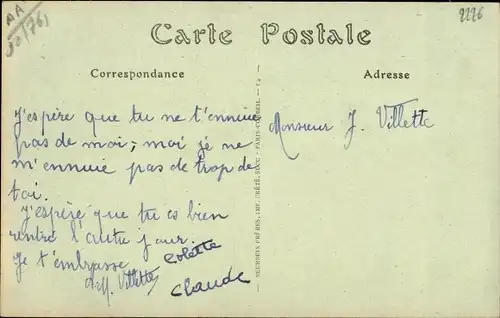 AA
2226
Carte Postale
Correspondance
Adresse
J'espère que tu ne t'ennuie
pas de moi; moi je ne
m'ennuie pas de trop de
toi.
J'espère que tu es bien
rentré l'autre jour.
Je t'embrasse Colette
Villette
Claude
Monsieur J. Villette
NEURDEIN FRÈRES, IMP. CRÉTÉ, SUCC - PARIS-CORBEIL